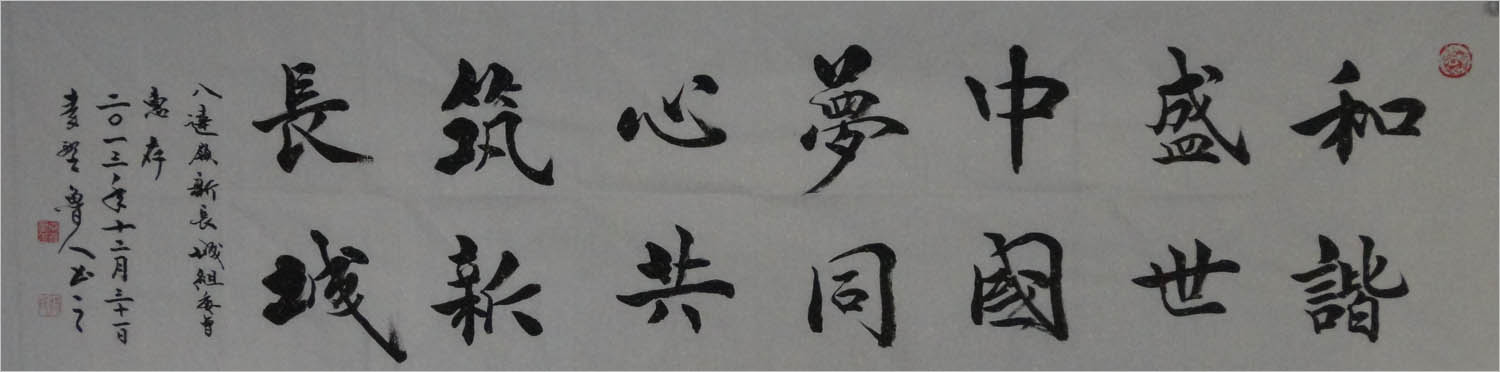 和諧
盛世
中國
夢同
心共
筑新
長城
八達嶺新長城組委會
惠存
二〇一三年十二月三十一日
魯人书之